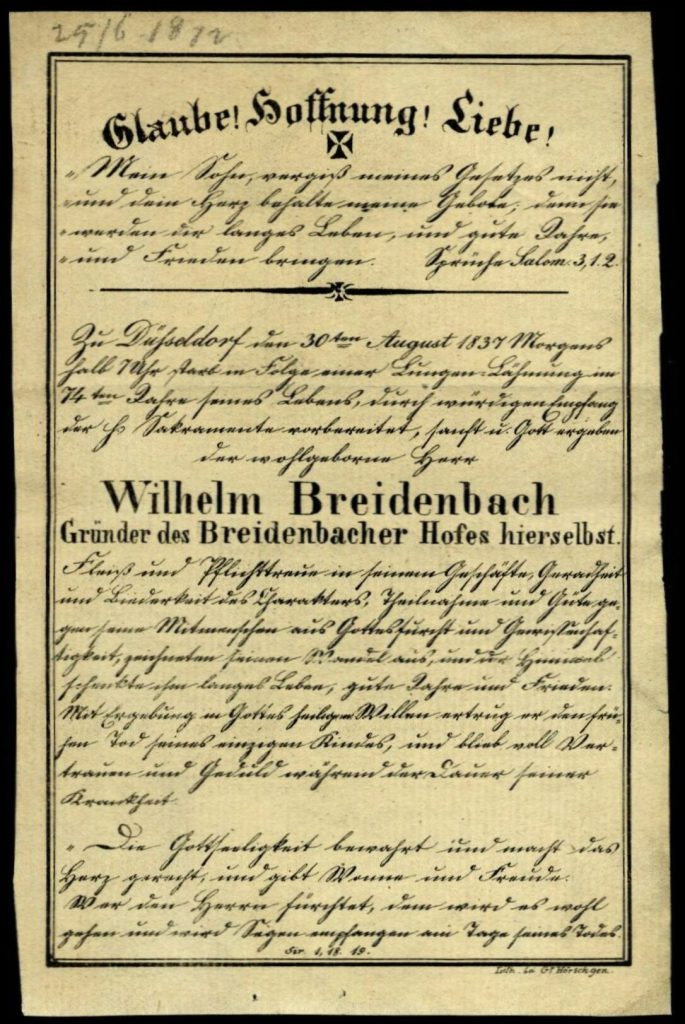 25/6 1812
Glaube! Hoffnung! Liebe!
„Mein Sohn, vergiß meines Gesetzes nicht,
„und dein Herz behalte meine Gebote, denn sie
„werden dir langes Leben, und gute Jahre,
„und Frieden bringen. Sprüche Salom. 3,1.2.
Zu Düsseldorf den 30ten August 1837 Morgens
halb 7 Uhr starb in Folge einer Lungen-Lähmung im
74ten Jahre seines Lebens, durch würdigen Empfang
der h. Sakramente vorbereitet, sanft u. Gott ergeben
der wohlgeborne Herr
Wilhelm Breidenbach
Gründer des Breidenbacher Hofes hierselbst.
Fleiß und Pflichttreue in seinem Geschäfte, Geradheit
und Biederkeit des Charakters, Theilnahme und Güte ge-
gen seine Mitmenschen aus Gottesfurcht und Gewissenhaf-
tigkeit, zeichneten seinen Wandel aus, und der Himmel
schenkte ihm langes Leben, gute Jahre und Frieden.
Mit Ergebung in Gottes heiligen Willen ertrug er den frü-
hen Tod seines einzigen Kindes, und blieb voll Ver-
trauen und Geduld während der Dauer seiner
Krankheit.
„Die Gottseeligkeit bewahrt und macht das
Herz gerecht, und gibt Wonne und Freude.
Wer den Herrn fürchtet, dem wird es wohl
gehen und wird Segen empfangen am Tage seines Todes.
Sir. 1, 18. 19.
Lith. bei